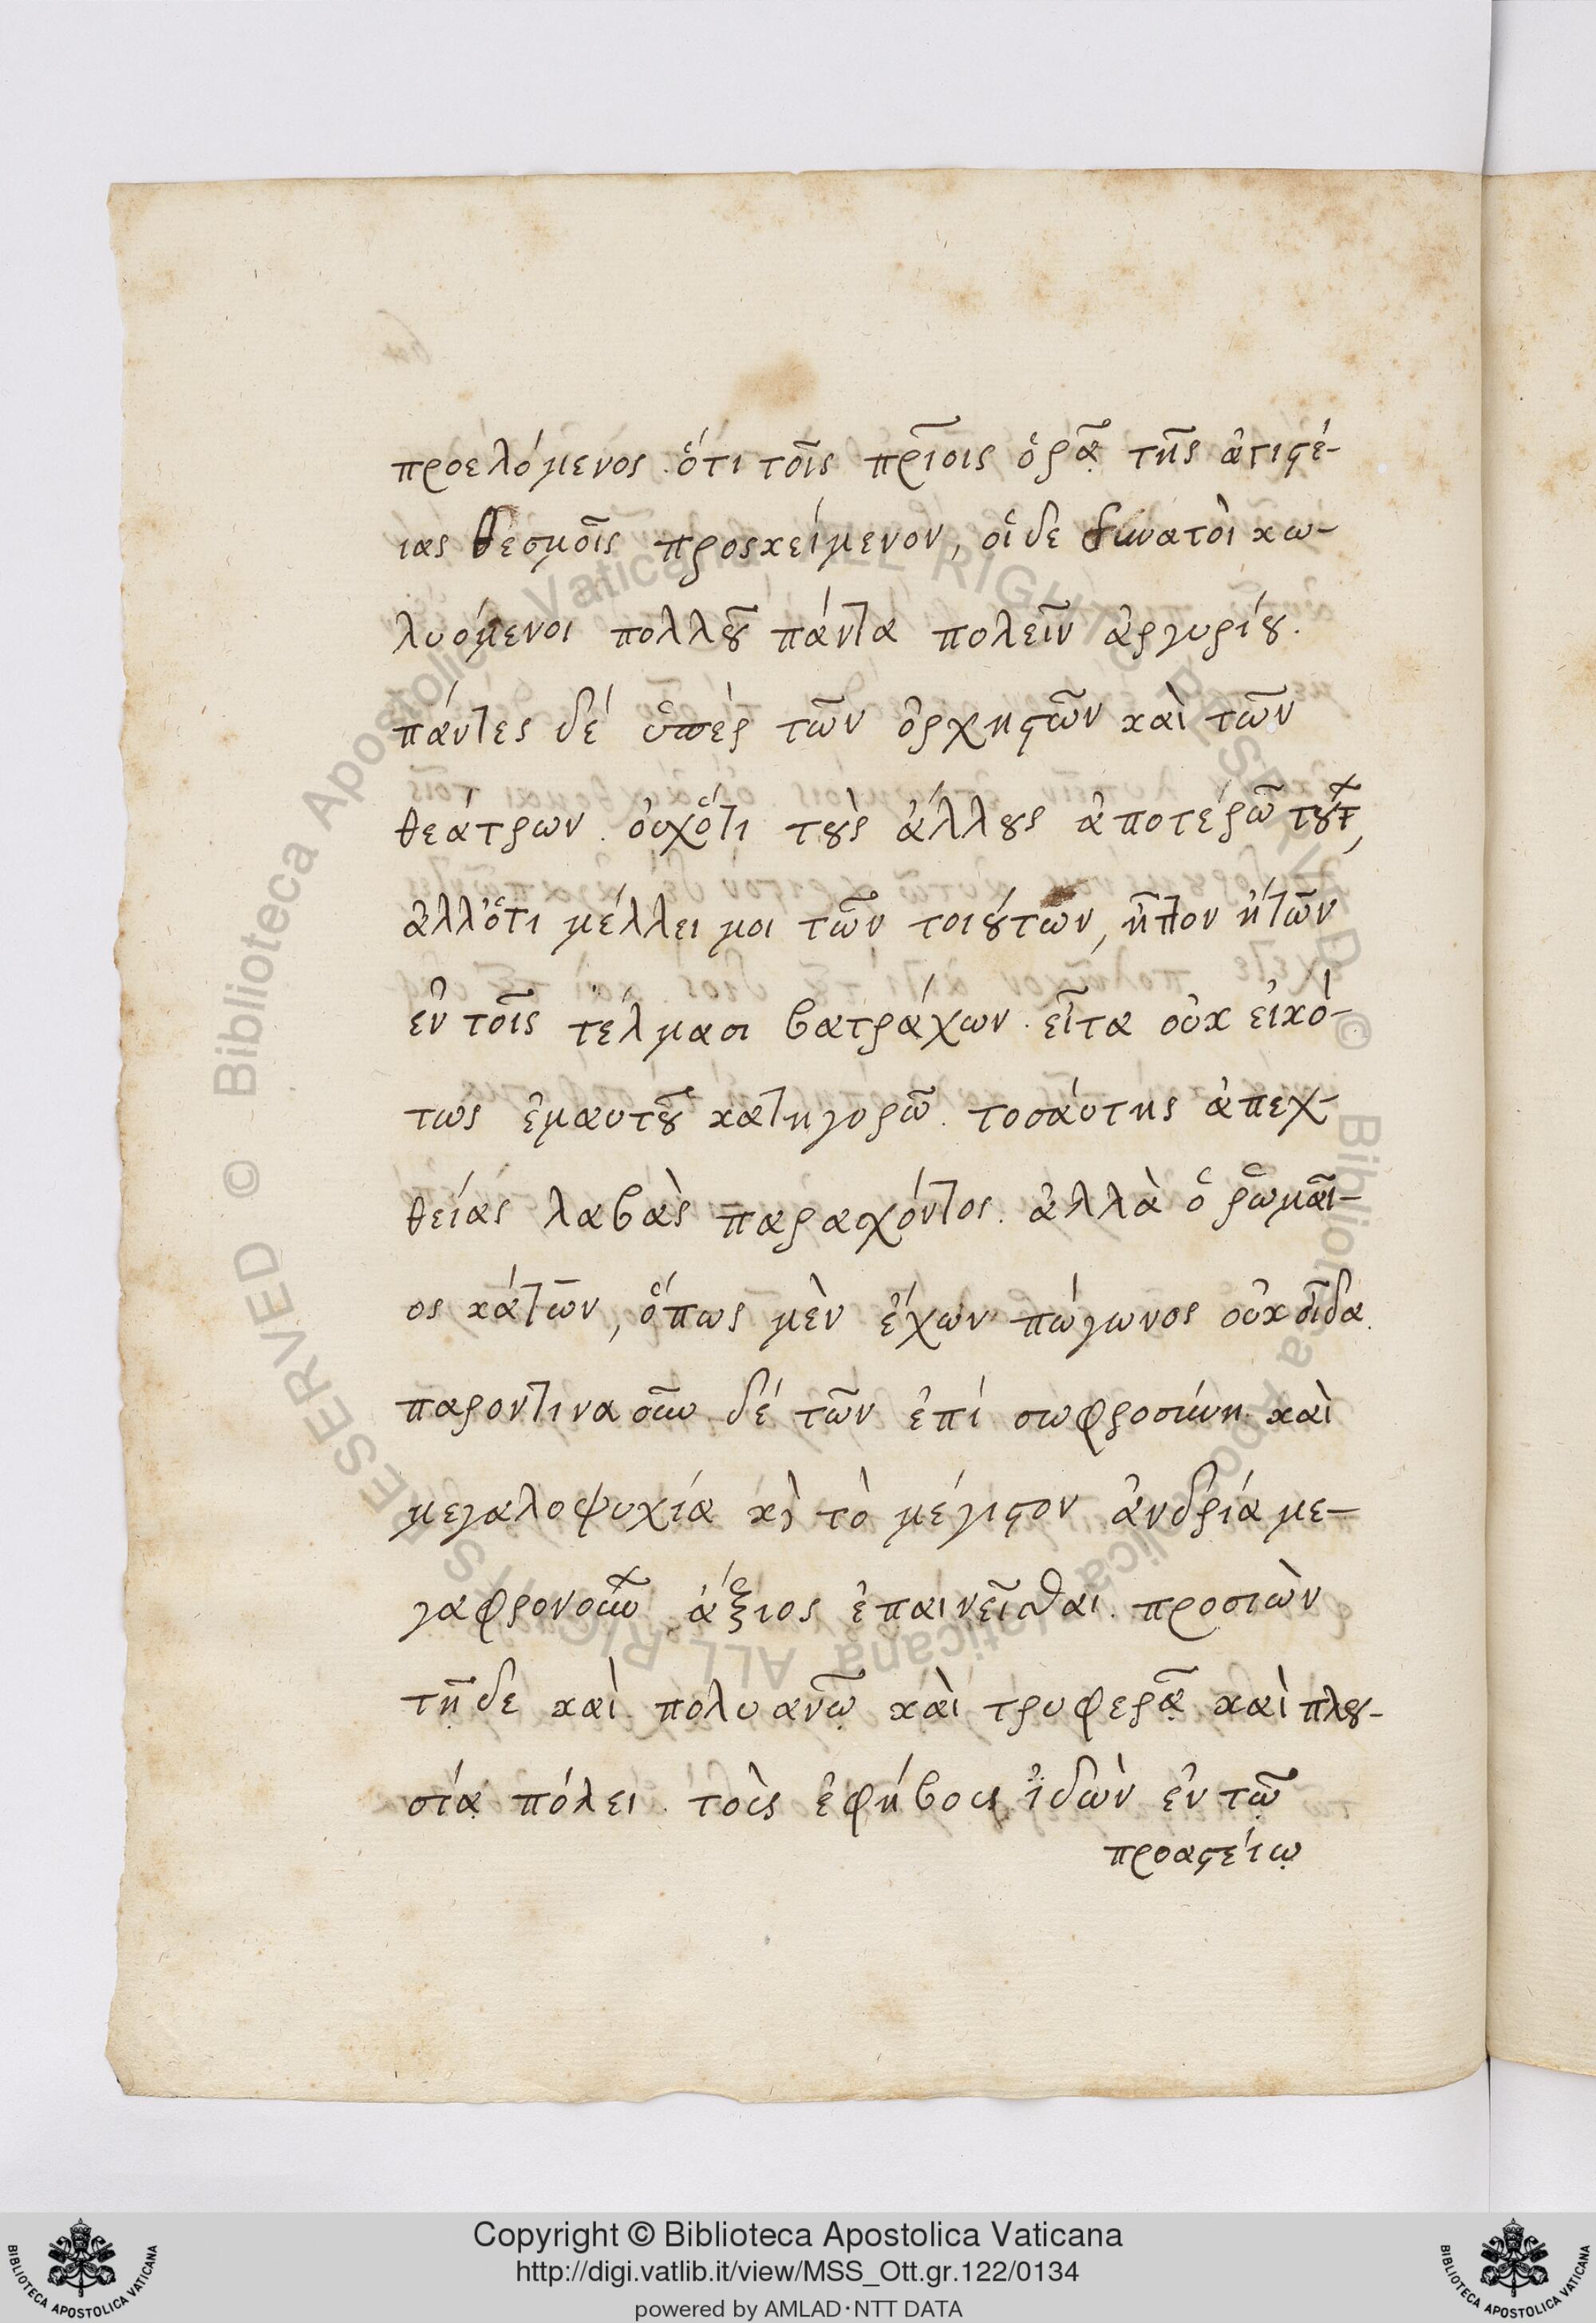 προελόμενος. ὅτι τοῖς πρίοις ὁρᾷ τῆς ἁτιστέ-
ιας θεσμοῖς προσκείμενον, οἵδε δυνατοὶ κω-
λυόμενοι πολλοῦ πάντα πολεῖν ἀργυρίου.
πάντες δέ ὑπὲρ τῶν ὀρχηστῶν καὶ τῶν
θεάτρων. οὐχὅτι τοὺς ἄλλους ἀποτέρῶ
ἀλλὅτι μέλλει μοι τῶν τοιούτων, ἧττον ἤτῶν
ἐν τοῖς τέλμασι βατράχων. εἶτα οὐκ εἰκό-
τως ἐμαυτοῦ κατηγορῶ. τοσάυτης ἀπεχ-
θείας λαβὰς παρασχόντος. ἀλλὰ ὁ ῥωμᾶι-
ος κάτων, ὅπως μὲν ἔχων πώγωνος οὐκ οἶδα.
παροντινασοῦν δέ τῶν ἐπί σωφροσύνη. καὶ
μεγαλοψυχία κὶ τὸ μέγιστον ἀνδρία με-
γαφρονοῦν ἄξιος ἐπαινεῖσθαι. προσιὼν
τῇδε καὶ πολυανῷ καὶ τρυφερᾷ καὶ πλου-
σίᾳ πόλει. τοὶς ἐφήβοις ἰδὼν ἐν τῷ
προαστείῳ
Copyright © Biblioteca Apostolica Vaticana
http://digi.vatlib.it/view/MSS_Ott.gr.122/0134
powered by AMLAD·NTT DATA